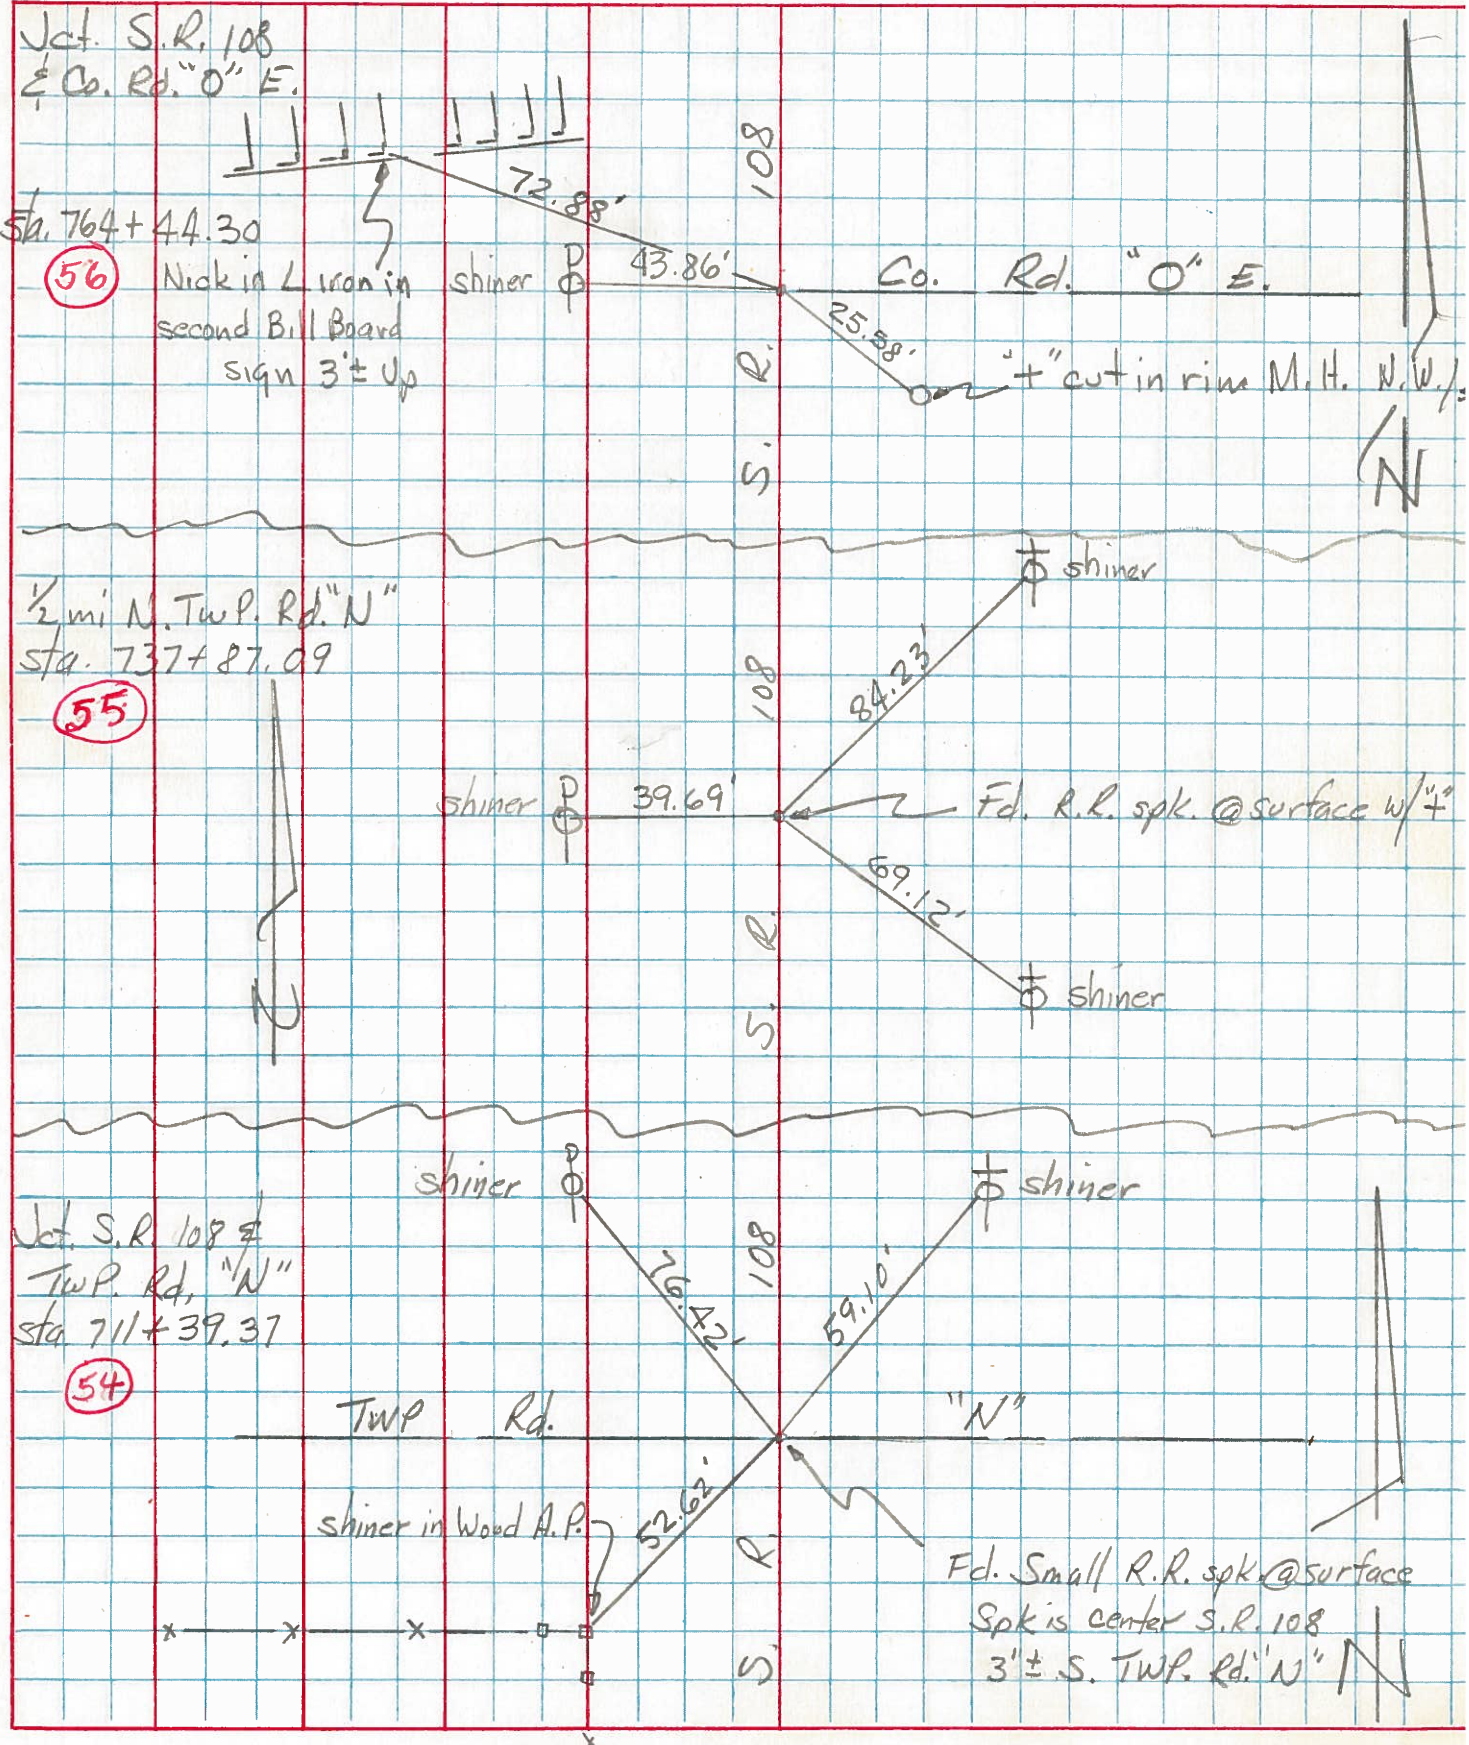 Jct. S.R. 108
& Co. Rd. "O" E.
72.88'
108
sta. 764+44.30
56
Nick in L iron in
second Bill Board
sign 3'± Up
shiner
43.86'
Co. Rd. "O" E.
25.58'
"+" cut in rim M.H. N.W./s
S. R.
N
1/2 mi N. TwP. Rd. "N"
sta. 737+87.09
55
shiner
108
84.23'
shiner
39.69'
Fd. R.R. spk. @ surface w/"+"
69.12'
S. R.
shiner
N
shiner
shiner
Jct. S.R. 108 &
TwP. Rd. "N"
sta. 711+39.37
54
76.42'
108
59.10'
TWP Rd. "N"
shiner in Wood A.P.
52.62'
S. R.
Fd. Small R.R. spk. @ surface
Spk is center S.R. 108
3'± S. TWP. Rd. "N"
N